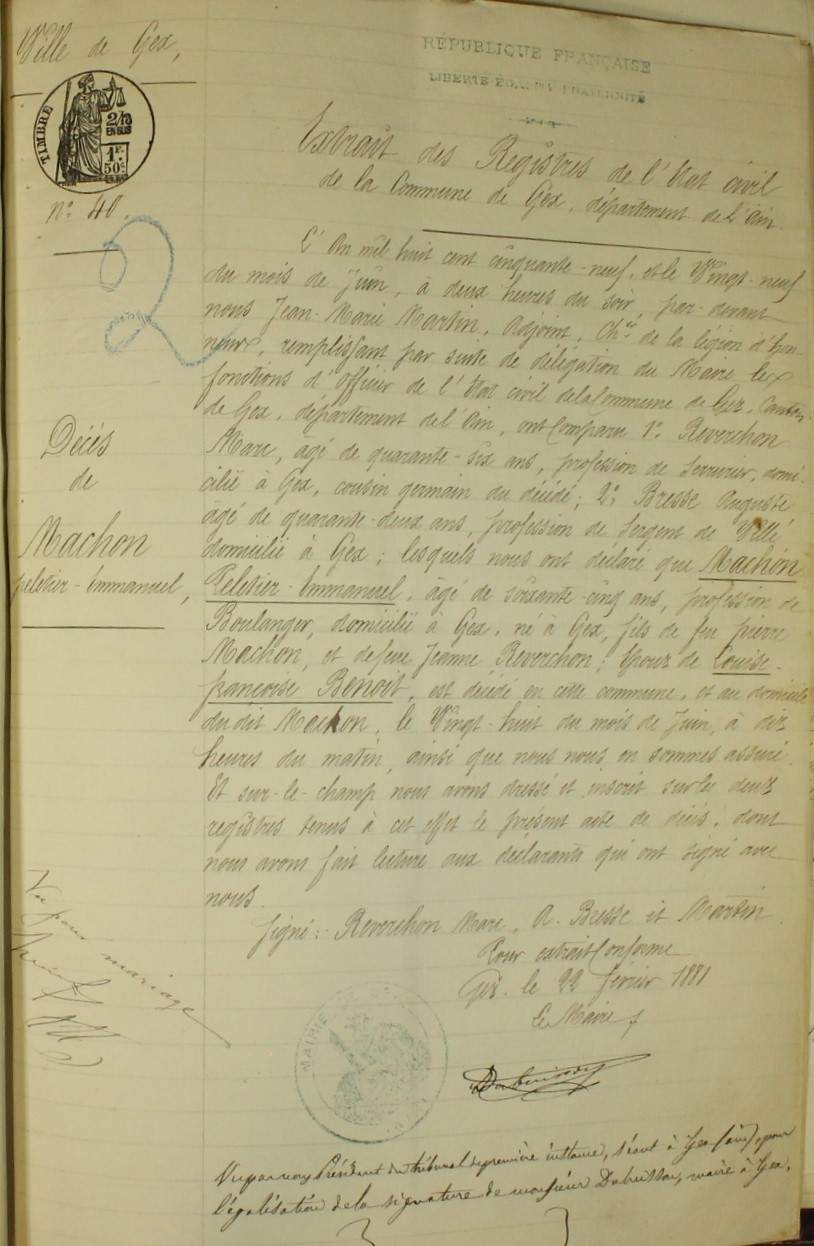 Ville de Gex,
TIMBRE
2/10
EN SUS
1F.
50c
nº 40.
2
RÉPUBLIQUE FRANÇAISE
LIBERTÉ ÉGALITÉ FRATERNITÉ
Extrait des Registres de l'Etat civil
de la Commune de Gex, département de l'Ain.
L'An mil huit cent cinquante-neuf, et le Vingt-neuf
du mois de Juin, à deux heures du soir, par-devant
nous Jean-Marie Martin, Adjoint, Chier de la légion d'hon-
neur, remplissant par suite de délégation du Maire les
fonctions d'officier de l'Etat civil de la Commune de Gex, Canton
de Gex, département de l'Ain, ont Comparu 1º Reverchon
Marc, agé de quarante-six ans, profession de Serrurier, domi-
cilié à Gex, cousin germain du décédé; 2º Bresse Auguste
agé de quarante-deux ans, profession de Sergent de Ville
domicilié à Gex; lesquels nous ont déclaré que Machon
Peletier-Emmanuel, âgé de soixante-cinq ans, profession de
Boulanger, domicilié à Gex, né à Gex, fils de feu pierre
Machon, et de feue Jeanne Reverchon; Epoux de Louise-
françoise Benoit, est décédé en cette commune, et au domicile
du dit Machon, le Vingt-huit du mois de Juin, à dix
heures du matin, ainsi que nous nous en sommes assuré.
Et sur-le-champ nous avons dressé et inscrit sur les deux
registres tenus à cet effet le présent acte de décès, dont
nous avons fait lecture aux déclarants qui ont signé avec
nous.
Signé: Reverchon Marc, A. Bresse et Martin.
Pour extrait Conforme
Gex, le 22 février 1881
Le Maire,
Décès
de
Machon
peletier-Emmanuel,
Vu pour mariage
MAIRIE
Vu par nous Président du tribunal de première instance, séant à Gex (ain), pour
légalisation de la signature de monsieur Dubuisson, maire à Gex.